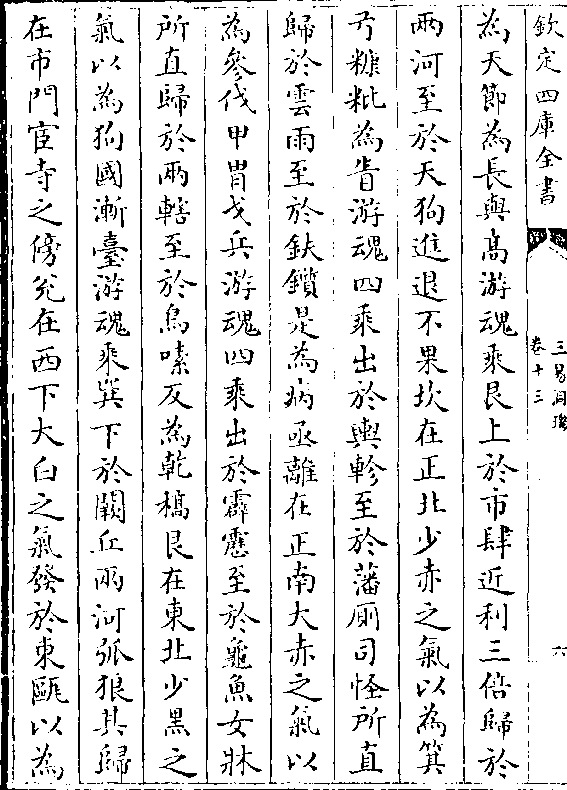 欽定四庫全書
三易洞璣
卷十三
六
為天節為長與高游魂乘艮上於市肆近利三倍歸於
兩河至於天狗進退不果坎在正北少赤之氣以為箕
糠粃為眚游魂四乘出於輿軫至於藩厠司怪所直
歸於雲雨至於鈇鑕是為病亟離在正南大赤之氣以
為參伐甲胄戈兵游魂四乘出於霹靂至於龜魚女牀
所直歸於兩轄至於鳥嗉反為乾槁艮在東北少黑之
氣以為狗國漸臺游魂乘巽下於闕丘兩河弧狼其歸
在市門宦寺之傍兊在西下大白之氣發於東甌以為